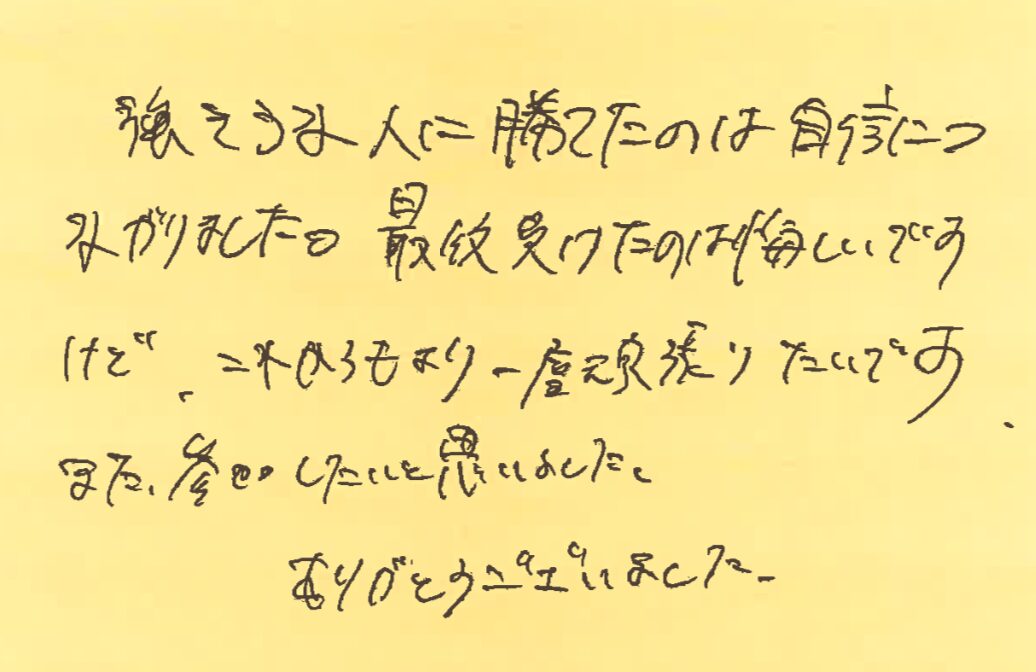 強そうな人に勝てたのは自信につ
ながりました。最後負けたのは悔しいです
けど、これからもより一層頑張りたいです.
また、参加したいと思いました。
ありがとうございました.